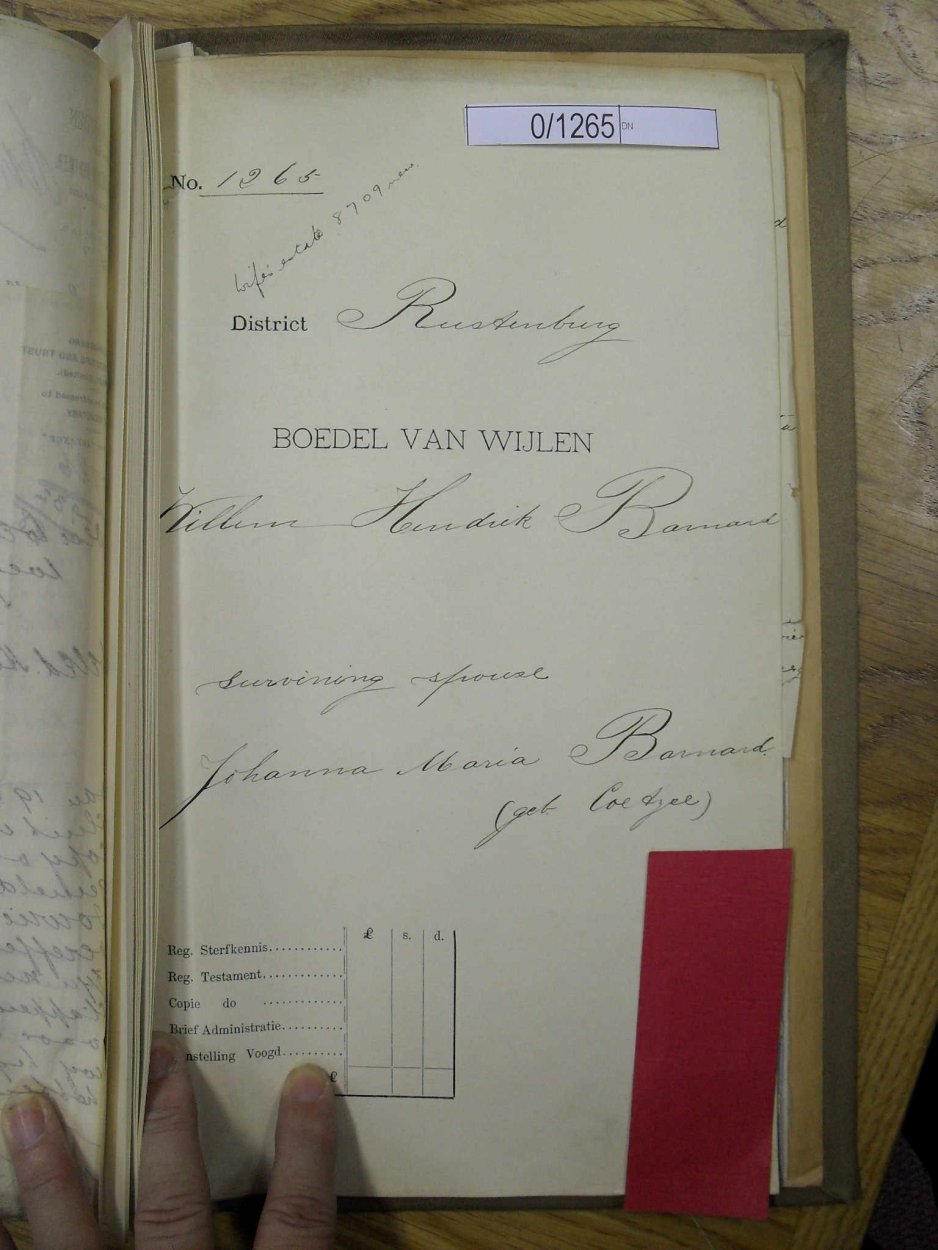 0/1265 DN
No. 1265
Wife's estate 8709 new.
District Rustenburg
BOEDEL VAN WIJLEN
Willem Hendrik Barnard
surviving spouse
Johanna Maria Barnard.
(geb. Coetzee)
£ s. d.
Reg. Sterfkennis............
Reg. Testament............
Copie do ............
Brief Administratie..........
nstelling Voogd..........
£